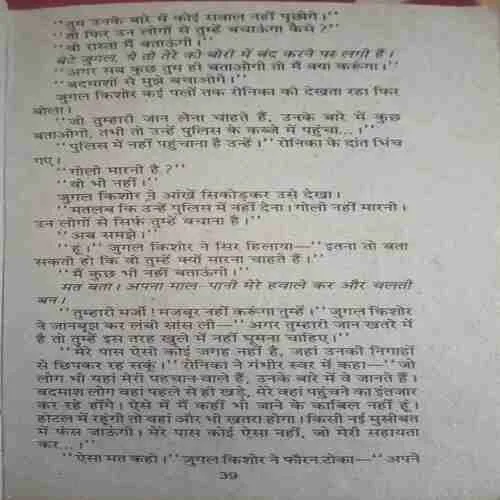 ‘‘तुम उनके बारे में कोई सवाल नहीं पूछोगे।’’
‘‘तो फिर उन लोगों से तुम्हें बचाऊंगा कैसे?’’
‘‘वो रास्ता मैं बताऊंगी।’’
बेटे जुगल, ये तो तेरे को बोरी में बंद करने पर लगी है।
‘‘अगर सब कुछ तुम ही बताओगी तो मैं क्या करूंगा।’’
‘‘बदमाशों से मुझे बचाओगे।’’
जुगल किशोर कई पलों तक रोनिका को देखता रहा फिर
बोला।
‘‘जो तुम्हारी जान लेना चाहते हैं, उनके बारे में कुछ
बताओगी, तभी तो उन्हें पुलिस के कब्जे में पहुंचा...।’’
‘‘पुलिस में नहीं पहुंचाना है उन्हें।’’ रोनिका के दांत भिंच
गए।
‘‘गोली मारनी है?’’
‘‘वो भी नहीं।’’
जुगल किशोर ने आंखें सिकोड़कर उसे देखा।
‘‘मतलब कि उन्हें पुलिस में नहीं देना। गोली नहीं मारनी।
उन लोगों से सिर्फ तुम्हें बचाना है।’’
‘‘अब समझे।’’
‘‘हूं।’’ जुगल किशोर ने सिर हिलाया—‘‘इतना तो बता
सकती हो कि वो तुम्हें क्यों मारना चाहते हैं।’’
‘‘मैं कुछ भी नहीं बताऊंगी।’’
मत बता। अपना माल-पानी मेरे हवाले कर और चलती
बन।
‘‘तुम्हारी मर्जी! मजबूर नहीं करूंगा तुम्हें।’’ जुगल किशोर
ने जानबूझ कर लंबी सांस ली—‘‘अगर तुम्हारी जान खतरे में
है तो तुम्हें इस तरह खुले में नहीं घूमना चाहिए।’’
‘‘मेरे पास ऐसी कोई जगह नहीं है, जहां उनकी निगाहों
से छिपकर रह सकूं।’’ रोनिका ने गंभीर स्वर में कहा—‘‘जो
लोग भी यहां मेरी पहचान वाले हैं, उनके बारे में वे जानते हैं।
बदमाश लोग वहां पहले से ही खड़े, मेरे वहां पहुंचने का इंतजार
कर रहे होंगे। ऐसे में मैं कहीं भी जाने के काबिल नहीं हूं।
होटल में रहूंगी तो वहां और भी खतरा होगा। किसी नई मुसीबत
में फंस जाऊंगी। मेरे पास कोई ऐसा नहीं, जो मेरी सहायता
कर...।’’
‘‘ऐसा मत कहो।’’ जुगल किशोर ने फौरन टोका—‘‘अपने
39